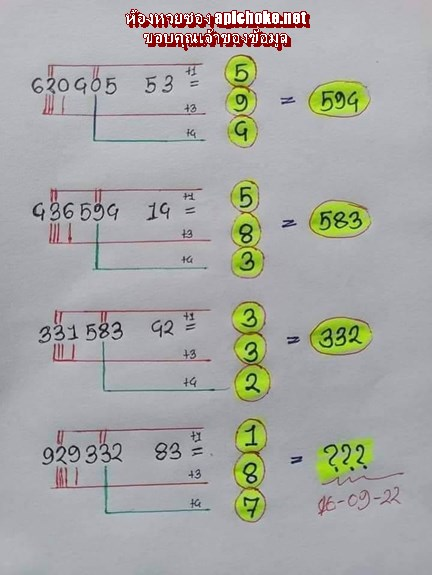 ห้องหวยซอง apichoke.net
ขอบคุณเจ้าของข้อมูล
+1 5
620405 53 = 9 = 594
+3
+4 4
+1 5
436594 14 = 8 = 583
+3
+4 3
+1 3
331583 42 = 3 = 332
+3
+4 2
+1 1
929332 83 = 8 = ???
+3
+4 7
16-09-22